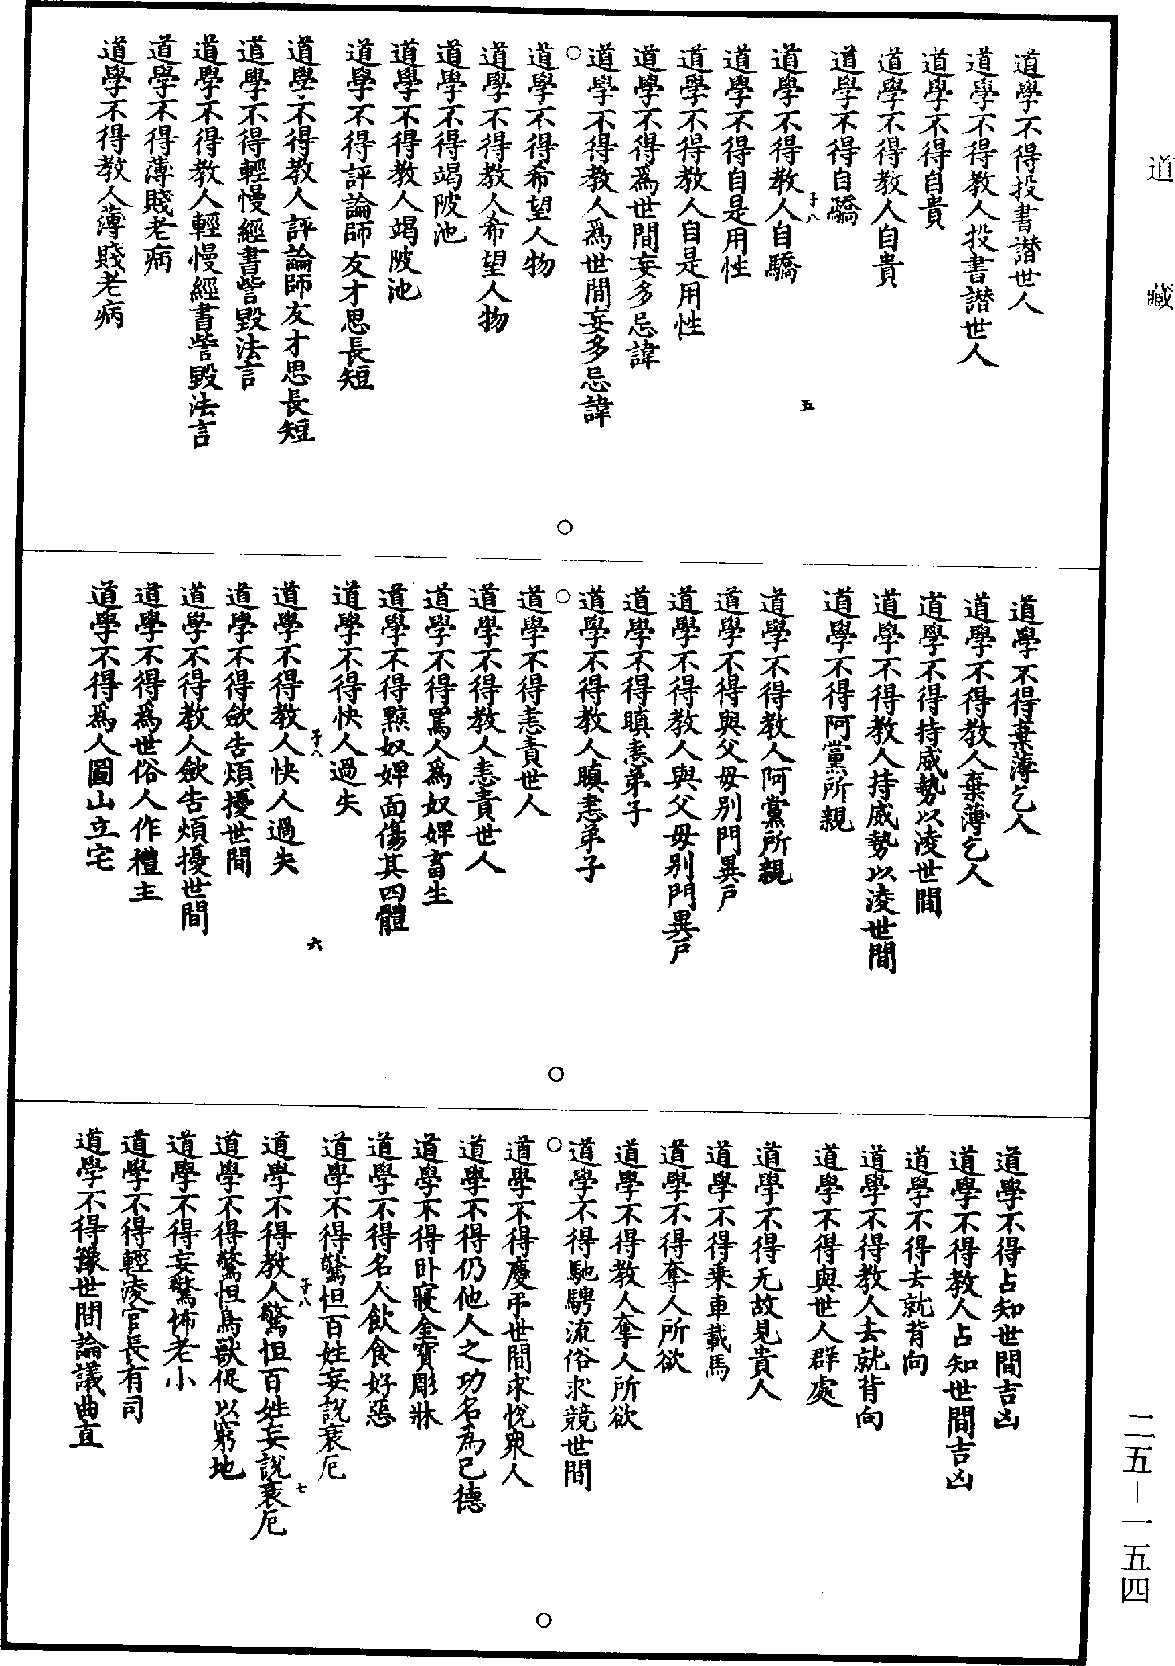 道藏
道學不得投書譖世人
道學不得教人投書譖世人
道學不得自貴
道學不得教人自貴
道學不得自驕
道學不得教人自驕
道學不得自是用性
道學不得教人自是用性
道學不得為世間妄多忌諱
道學不得教人為世間妄多忌諱
道學不得希望人物
道學不得教人希望人物
道學不得竭陂池
道學不得教人竭陂池
道學不得評論師友才思長短
道學不得教人評論師友才思長短
道學不得輕慢經書訾毀法言
道學不得教人輕慢經書訾毀法言
道學不得薄賤老病
道學不得教人薄賤老病
五
道學不得棄薄乞人
道學不得教人棄薄乞人
道學不得持威勢以凌世間
道學不得教人持威勢以凌世間
道學不得阿黨所親
道學不得教人阿黨所親
道學不得與父母別門異戶
道學不得教人與父母別門異戶
道學不得瞋恚弟子
道學不得教人瞋恚弟子
道學不得恚責世人
道學不得教人恚責世人
道學不得罵人為奴婢畜生
道學不得黥奴婢面傷其四體
道學不得快人過失
道學不得教人快人過失
道學不得斂告煩擾世間
道學不得教人斂告煩擾世間
道學不得為世俗人作禮主
道學不得為人圖山立宅
六
道學不得占知世間吉凶
道學不得教人占知世間吉凶
道學不得去就背向
道學不得教人去就背向
道學不得與世人群處
道學不得无故見貴人
道學不得乘車載馬
道學不得奪人所欲
道學不得教人奪人所欲
道學不得馳騁流俗求競世間
道學不得慶弔世間求悅衆人
道學不得仍他人之功名為己德
道學不得卧寢金寶彫牀
道學不得名人飲食好惡
道學不得驚怛百姓妄說衰厄
道學不得教人驚怛百姓妄說衰厄
道學不得驚怛鳥獸促以窮地
道學不得妄驚怖老小
道學不得輕凌官長有司
道學不得豫世間論議曲直
七
二五－一五四